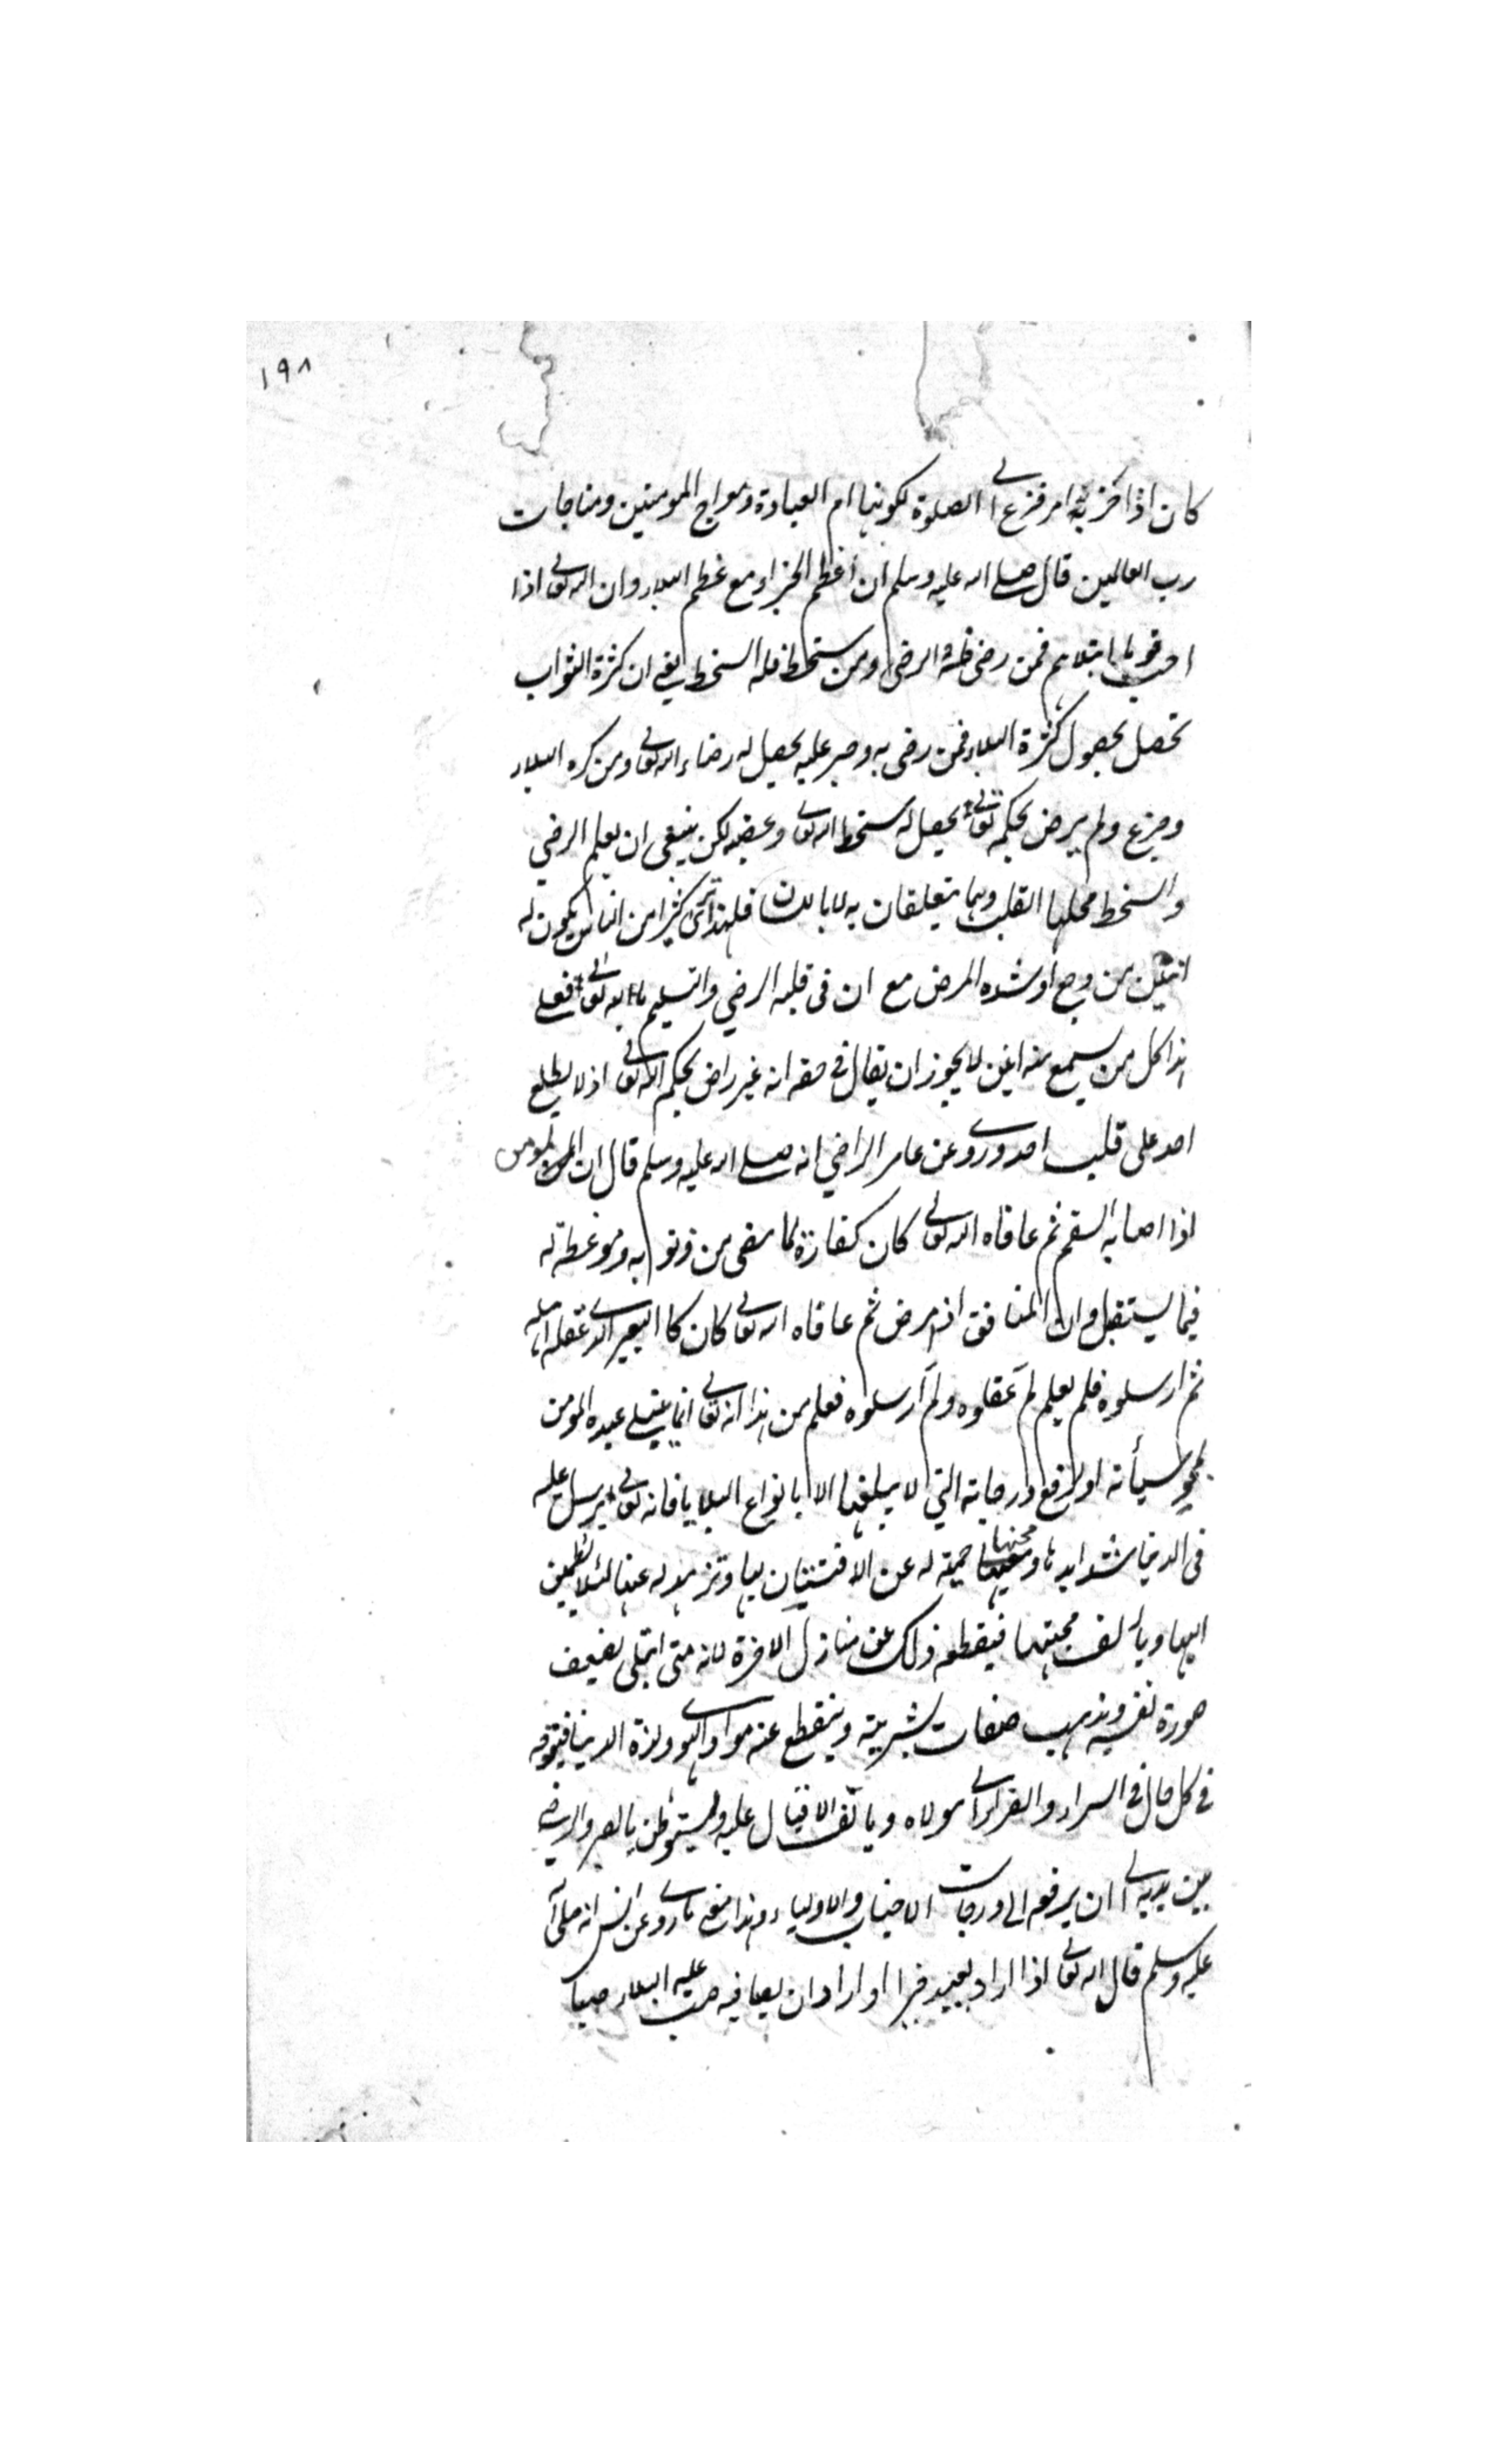 ١٩٨
كان اذا حزبه امر فزع الى الصلوة لكونها ام العبادة ومعراج المومنين ومناجات
رب العالمين قال صلى الله عليه وسلم ان اعظم الجزاء مع عظم البلاء وان الله تعالى اذا
احب قوما ابتلاهم فمن رضى فله الرضى ومن سخط فله السخط يعنى ان كثرة الثواب
تحصل بحصول كثرة البلاء فمن رضى به وصبر عليه يحصل له رضاء الله تعالى ومن كره البلاء
وجزع ولم يرض بحكمه تعالى يحصل له سخط الله تعالى وغضبه لكن ينبغى ان يعلم الرضي
والسخط محلها القلب وهما يتعلقان به لا باللسان فلهذا ترى كثيرا من الناس يكون له
انين من وجع او شده المرض مع ان فى قلبه الرضي والتسليم بامر الله تعالى فعلى
هذا كل من يسمع منه انين لا يجوز ان يقال فى حقه انه غير راض بحكم الله تعالى اذ لا يطلع
احد على قلب احد وروى عن عامر الراضي انه صلى الله عليه وسلم قال ان المومن
اذا اصابه السقم ثم عافاه الله تعالى كان كفارة لما مضى من ذنوبه وموعظة له
فيما يستقبل وان المنافق اذا مرض ثم عافاه الله تعالى كان كا البعير الذى عقله اهله
ثم ارسلوه فلم يعلم لم عقلوه ولم ارسلوه فعلم من هذا انه تعالى انما يبتلى عبده المومن
ليمحو سيأته او لرفع درجاته التي لا يبلغها الا بانواع البلايا فانه تعالى يرسل عليه
فى الدنيا شدايدها ومحنها حمية له عن الافتتنان بها وتزهيد له عنها لئلا يطمئن
اليها ويألف محبتها فيقطعه ذلك عن منازل الاخرة لانه متى ابتلى يضعف
صورة نفسه ويذهب صفات بشريته وينقطع عنه مواد الهوى ولذة الدنيا فيتوجه
فى كل حال فى السراء والضراء الى مولاه ويألف الاقبال عليه وليستوطن بالصبر والرضى
بين يديه الى ان يرفعه الى درجات الاحباب والاولياء وهذا معنى ما روى عن انس انه صلى الله
عليه وسلم قال الله تعالى اذا اراد بعبد خيرا او اراد ان يصافيه صب عليه البلاء صبا